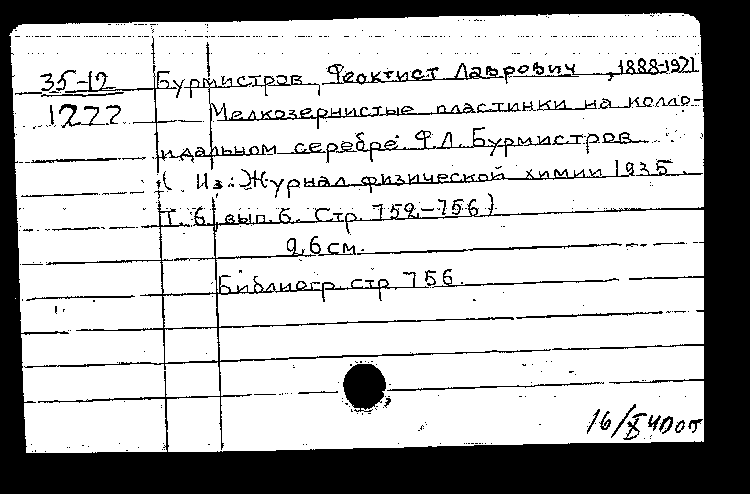 35-12 Бурмистров, Феоктист Лаврович, 1888-1971
1277 Мелкозернистые пластинки на колло-
идальном серебре. Ф.Л. Бурмистров
( Из: Журнал физической химии 1935.
Т. 6, вып. 6. Стр. 752-756)
9,6 см.
Библиогр. стр. 756.
16/X 40